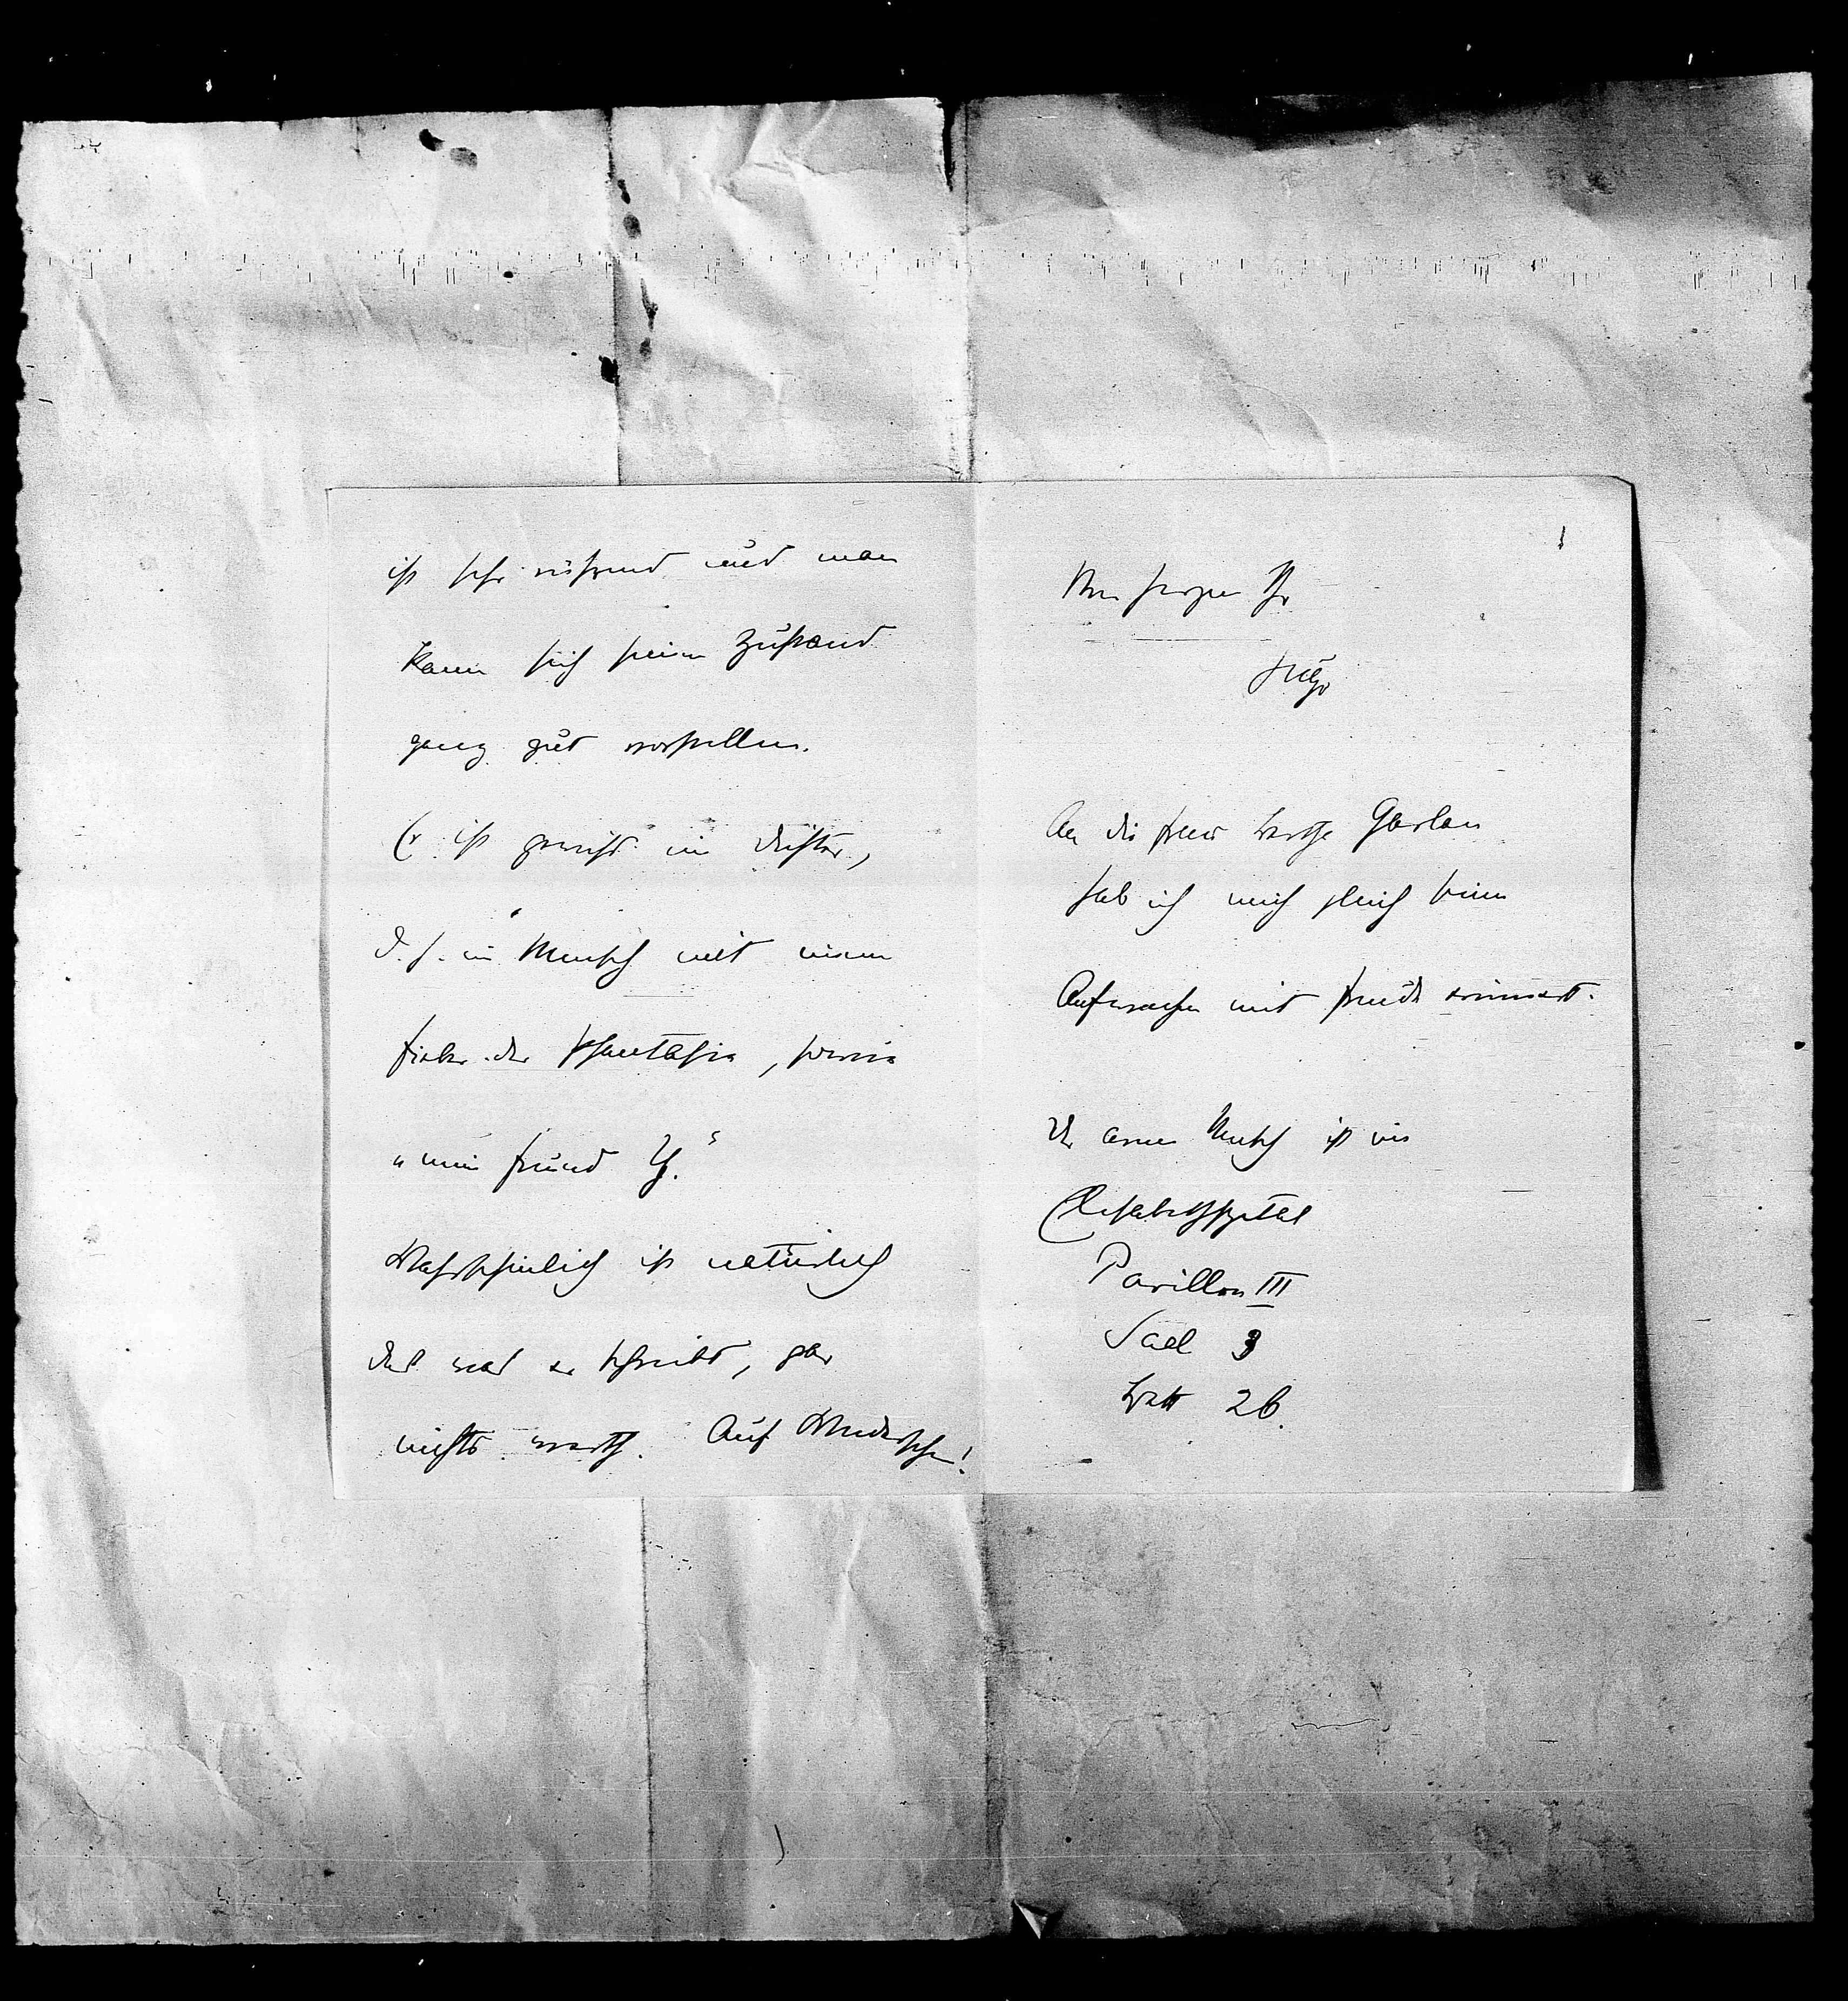 ist sehr rührend und man
kann sich seinen Zustand
ganz gut vorstellen.
Er ist gewiss ein Dichter,
d. h. ein Mensch mit einem
Fieber der Phantasie, sowie
„mein Freund Y.“
Wahrscheinlich ist natürlich
das was er schreibt, gar
nichts werth. Auf Wiedersehen!
Von Herzen Ihr
Hugo
An die Frau Bertha Garlan
hab ich mich gleich beim
Aufwachen mit Freude erinnert.
Der arme Mensch ist im
Elisabethspital
Pavillon III
Saal 3
Bett 26.